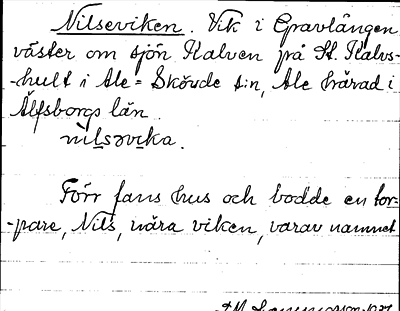 Nilseviken. Vik i Gravlången
väster om sjön Kalven på St. Kalvs-
-hult i Ale-Skövde s:n, Ale härad i
Älfsborgs län.
nilsəvika.
Förr fans hus och bodde en tor-
-pare, Nils, nära viken, varav namnet